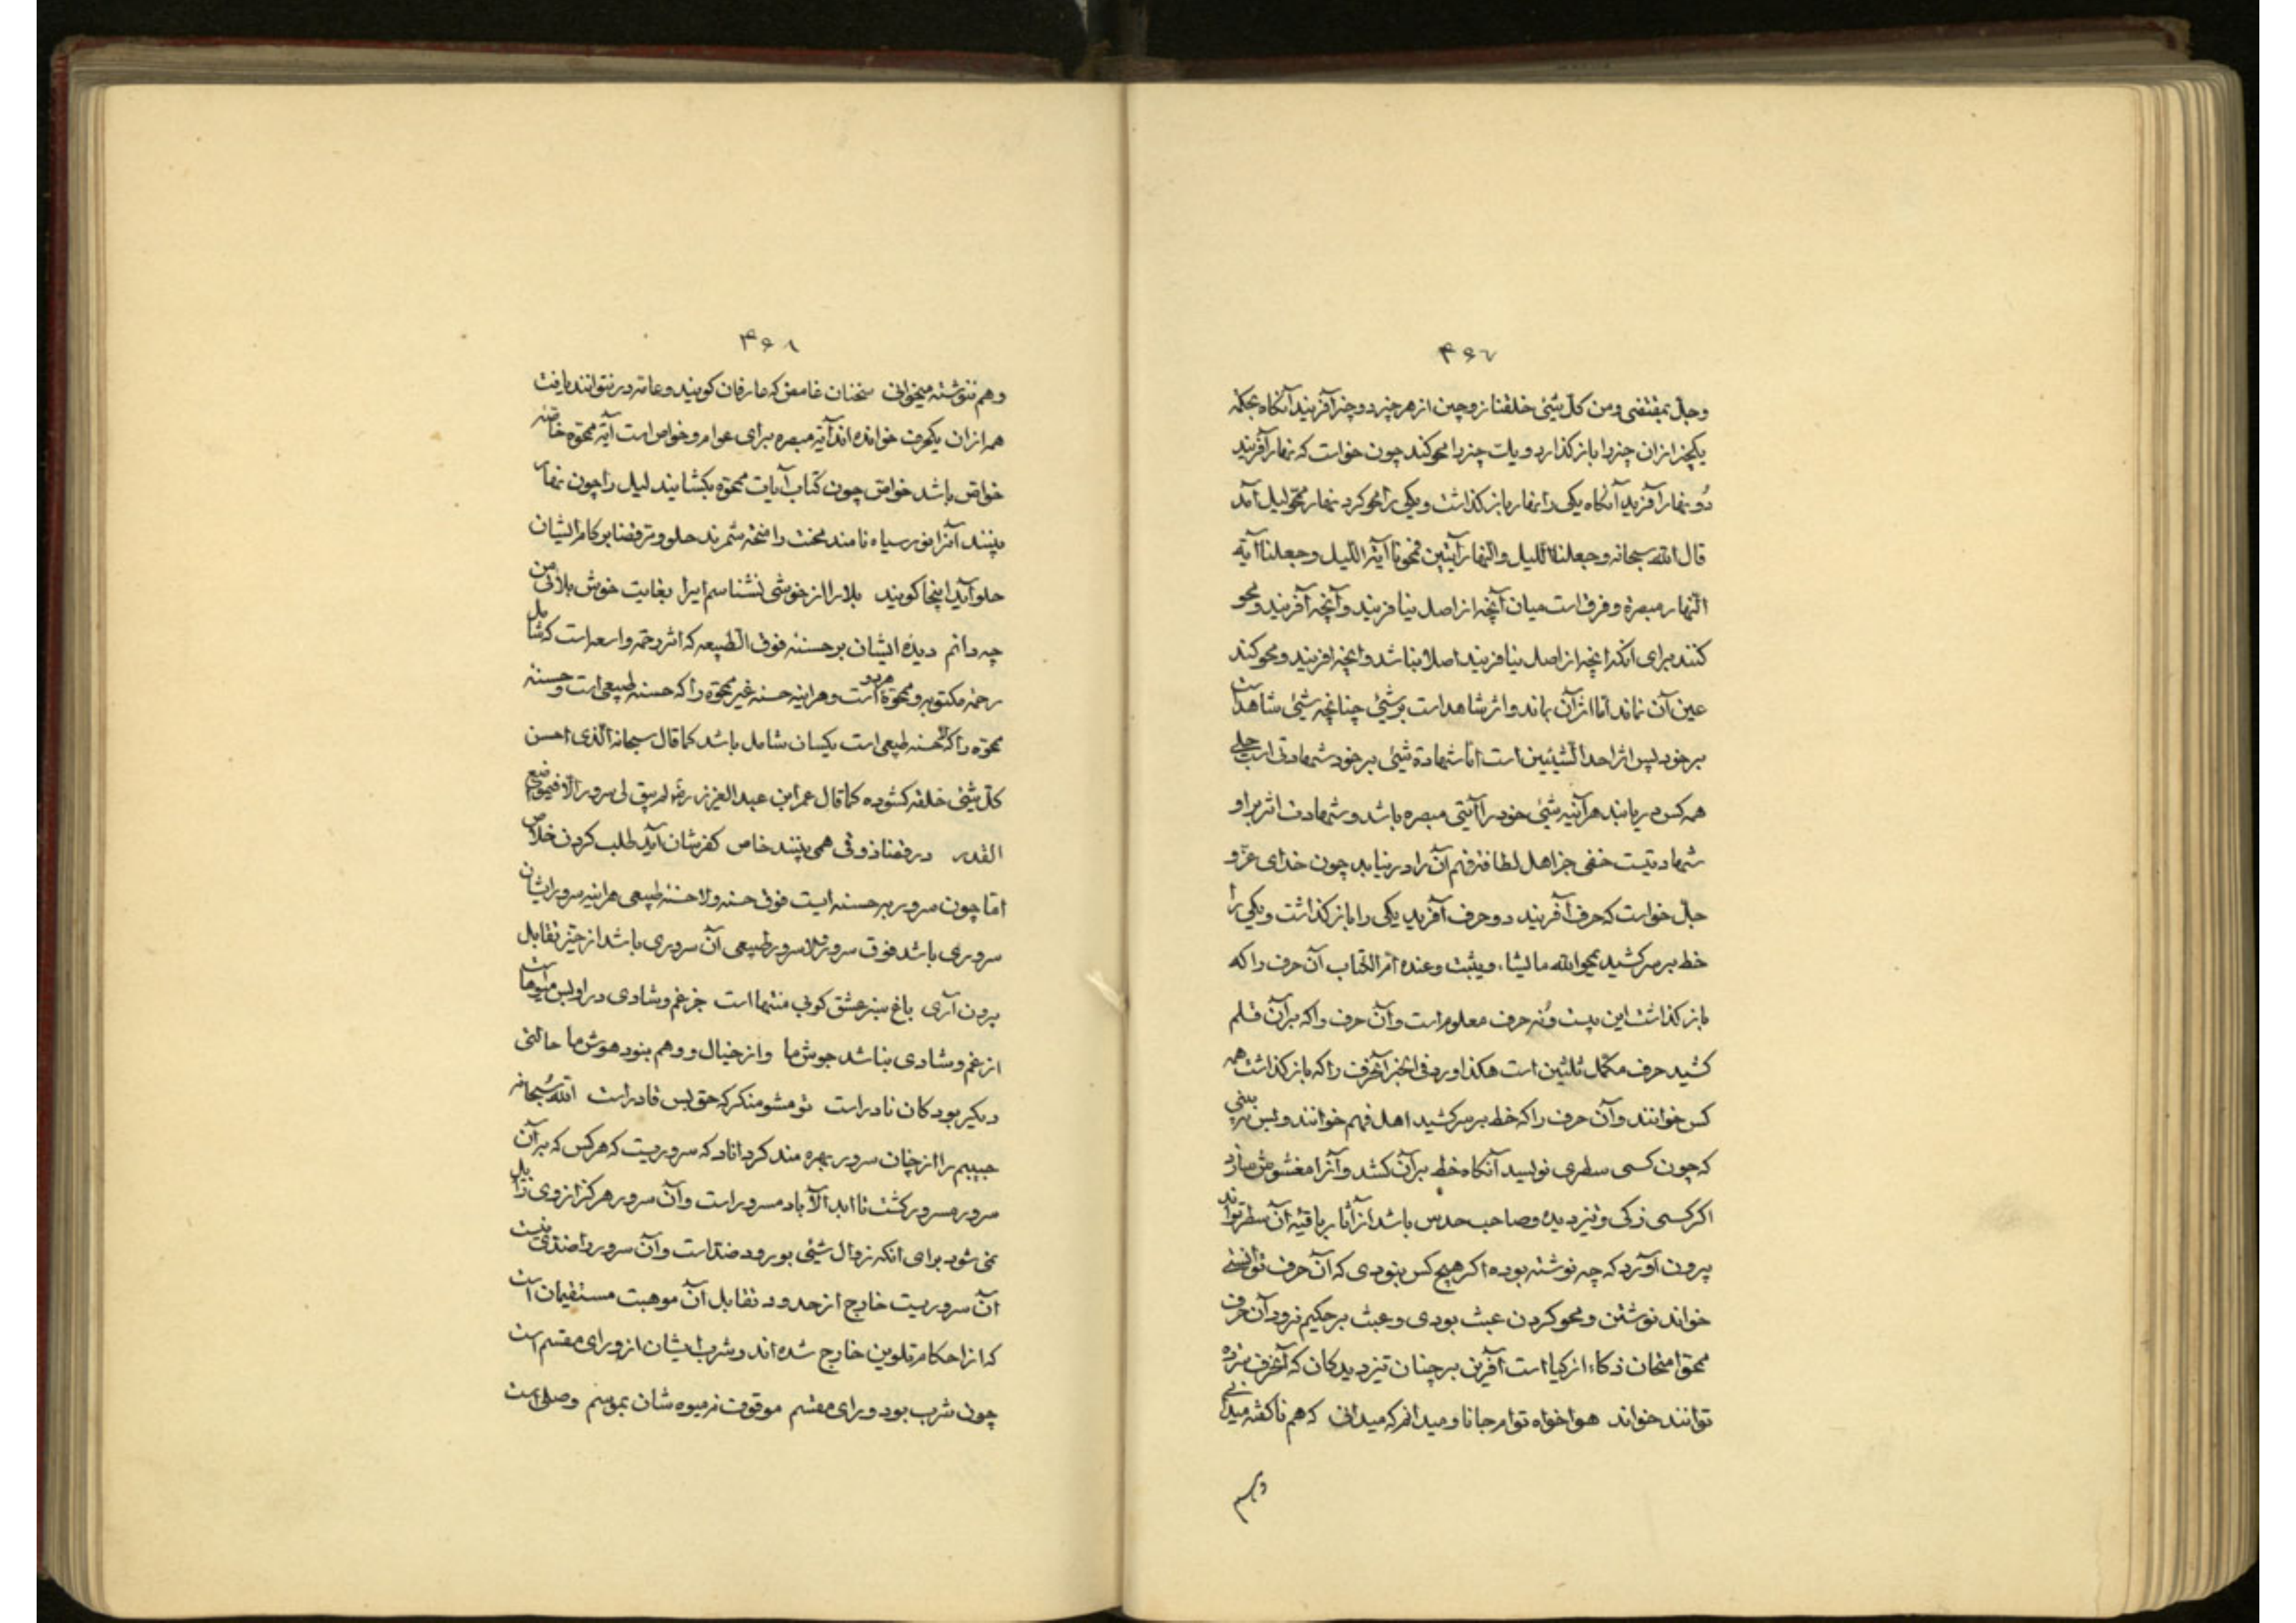 ۴۶۷
وجل بمقتضی ومن کل شیئ خلقنا زوجین از هر چیز دو چیز آفریند آنگاه بحکمة
یکچیز از ان چیز را باز کذارد و یک چیز را محو کند چون خواست که نهار آفریند
دو نهار آفرید آنکاه یکی را نهار باز کذاشت و یکی را محو کرد نهار ممحو لیل آمد
قال الله سبحانه وجعلنا اللیل والنهار آیتین فمحونا آیة اللیل وجعلنا آیة
النهار مبصرة و فرق است میان آنچه از اصل نیافریند و آنچه آفریند و محو
کنند برای انکه انچه از اصل نیافریند اصلا نباشد و انچه افریند و محو کند
عین آن نماند اما اثر آن بماند و اثر شاهد است بر شیئ چنانچه شیئ شاهد است
بر خود پس اثر احد الشیئین است اما شهادة شیئ بر خود شهادتی است جلی
همه کس دریابند هر آینه شیئ خود را آیتی مبصره باشد و شهادت اثر بر او
شهادتیست خفی جز اهل لطافة فهم آن را در نیابد چون خدای عز و
جل خواست که حرف آفریند دو حرف آفرید یکی را باز کذاشت و یکی را
خط بر سر کشید یمحو الله ما یشاء ویثبت وعنده ام الکتاب آن حرف را که
باز کذاشت این بیست و نه حرف معلوم است و آن حرف را که بر آن قلم
کشید حرف مکمل ثلثین است هکذا ورد فی الخبر آنحرف را که باز کذاشت همه
کس خوانند و آن حرف را که خط بر سر کشید اهل فهم خوانند و بس نه بینی
که چون کسی سطری نویسد آنکاه خط بر آن کشد و آنرا مغشوش سازد
اکر کسی زکی و تیز دیده و صاحب حدس باشد از آثار باقیه آن سطر تواند
بیرون آورد که چه نوشته بوده اکر هیچ کس نبودی که آن حرف توانستی
خواند نوشتن و محو کردن عبث بودی و عبث بر حکیم نرود آن حرف
ممحو امتحان ذکاء ازکیا است آفرین بر چنان تیز دیدکان که آنحرف سترده
توانند خواند هوا خواه توام جانا و میدانم که میدانی که هم ناکفته میدانی
وهم
۴۶۸
وهم ننوشته میخوانی سخنان غامض که عارفان کویند و عامه در نتوانند یافت
همه از ان یکحرف خوانده اند آیة مبصره برای عوام و خواص است آیة ممحوه خاصه
خواص باشد خواص چون کتاب آیات ممحوه بکشایند لیل را چون نهار
بینند آنرا نور سیاه نامند محنت را منحه شمرند حلو و مر قضا بر کام ایشان
حلو آید اینجا کویند بلا را از خوشی نشناسم ایرا بغایت خوش بلائی من
چه دانم دیده ایشان بر حسنه فوق الطبیعه که اثر رحمة واسعه است که شامل
رحمة مکتوبه و ممحوة است و هر اینه حسنه غیر ممحوه را که حسنه طبیعی است و حسنه
ممحوه را که لا حسنه طبیعی است یکسان شامل باشد کما قال سبحانه الذی احسن
کل شیئ خلقه کشوده کما قال عمر ابن عبد العزیز رضه لم یبق لی سرور الا فی مواقع
القدر در قضا ذوقی همی بینند خاص کفرشان آید طلب کردن خلاص
اما چون سرور بر حسنه ایست فوق حسنه و لا حسنه طبیعی هر اینه سرور ایشان
سروری باشد فوق سرور و لا سرور طبیعی آن سروری باشد از حیز تقابل
برون آری باغ سبز عشق کو بی منتها است جز غم و شادی در او بس میوهاست
از غم و شادی نباشد جوش ما و از خیال و وهم نبود هوش ما حالتی
دیکر بود کان نادر است تو مشو منکر که حق بس قادر است الله سبحانه
حبیبم را از چنان سرور بهره مند کرداناد که سروریست که هر کس که بر آن
سرور مسرور کشت تا ابد الآباد مسرور است و آن سرور هرکز از وی زایل
نمی شود برای انکه زوال شیئی بورود ضد است و آن سرور را ضدی نیست
آن سروریست خارج از حدود تقابل آن موهبت مستقیمان است
که از احکام تلوین خارج شده اند و شرب ایشان از ورای مقسم است
چون شرب بود ورای مقسم موقوف نه میوه شان بموسم وصلی است